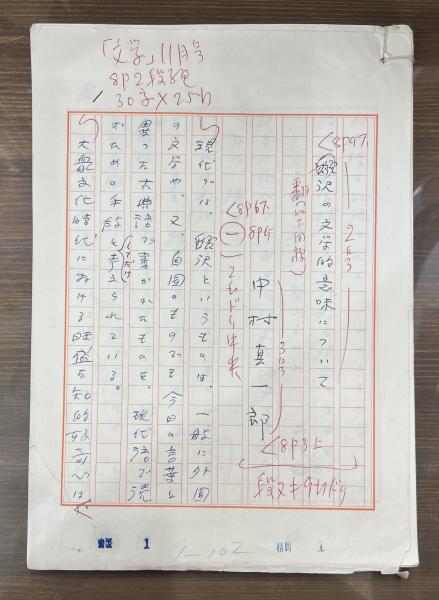 「文学」11月号
8P2段組
30字×25行
2行
飜訳の文学的意味について
翻(以下同様)
中村真一郎
(一)
現代では、飜訳というものは、一般に外国
の文学や、又、自国のものでも今日の言葉と
異った古典語で書かれたものを、現代語で読
むための手段としてだけ考えられている。
大衆文化時代における旺盛な知的好奇心は
1
1-102